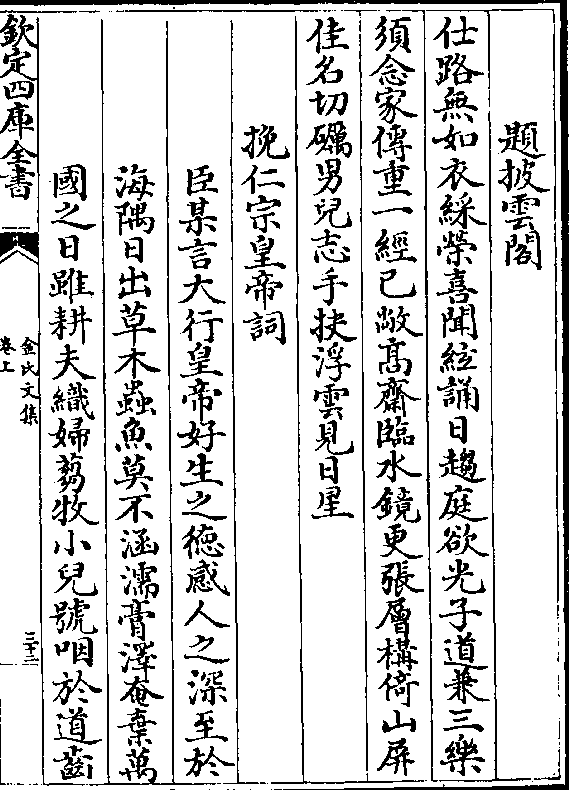 題披雲閣
仕路無如衣綵榮喜聞絃誦日趨庭欲光子道兼三樂
須念家傳重一經已敞高齋臨水鏡更張層構倚山屏
佳名切礪男兒志手抉浮雲見日星
挽仁宗皇帝詞
臣某言大行皇帝好生之德感人之深至於
海隅日出草木蟲魚莫不涵濡膏澤奄棄萬
國之日雖耕夫織婦蒭牧小兒號咽於道齒
欽定四庫全書
金氏文集
卷上
三十二